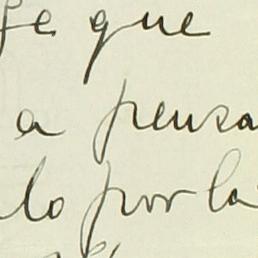 fe que
a pensa
lo por la